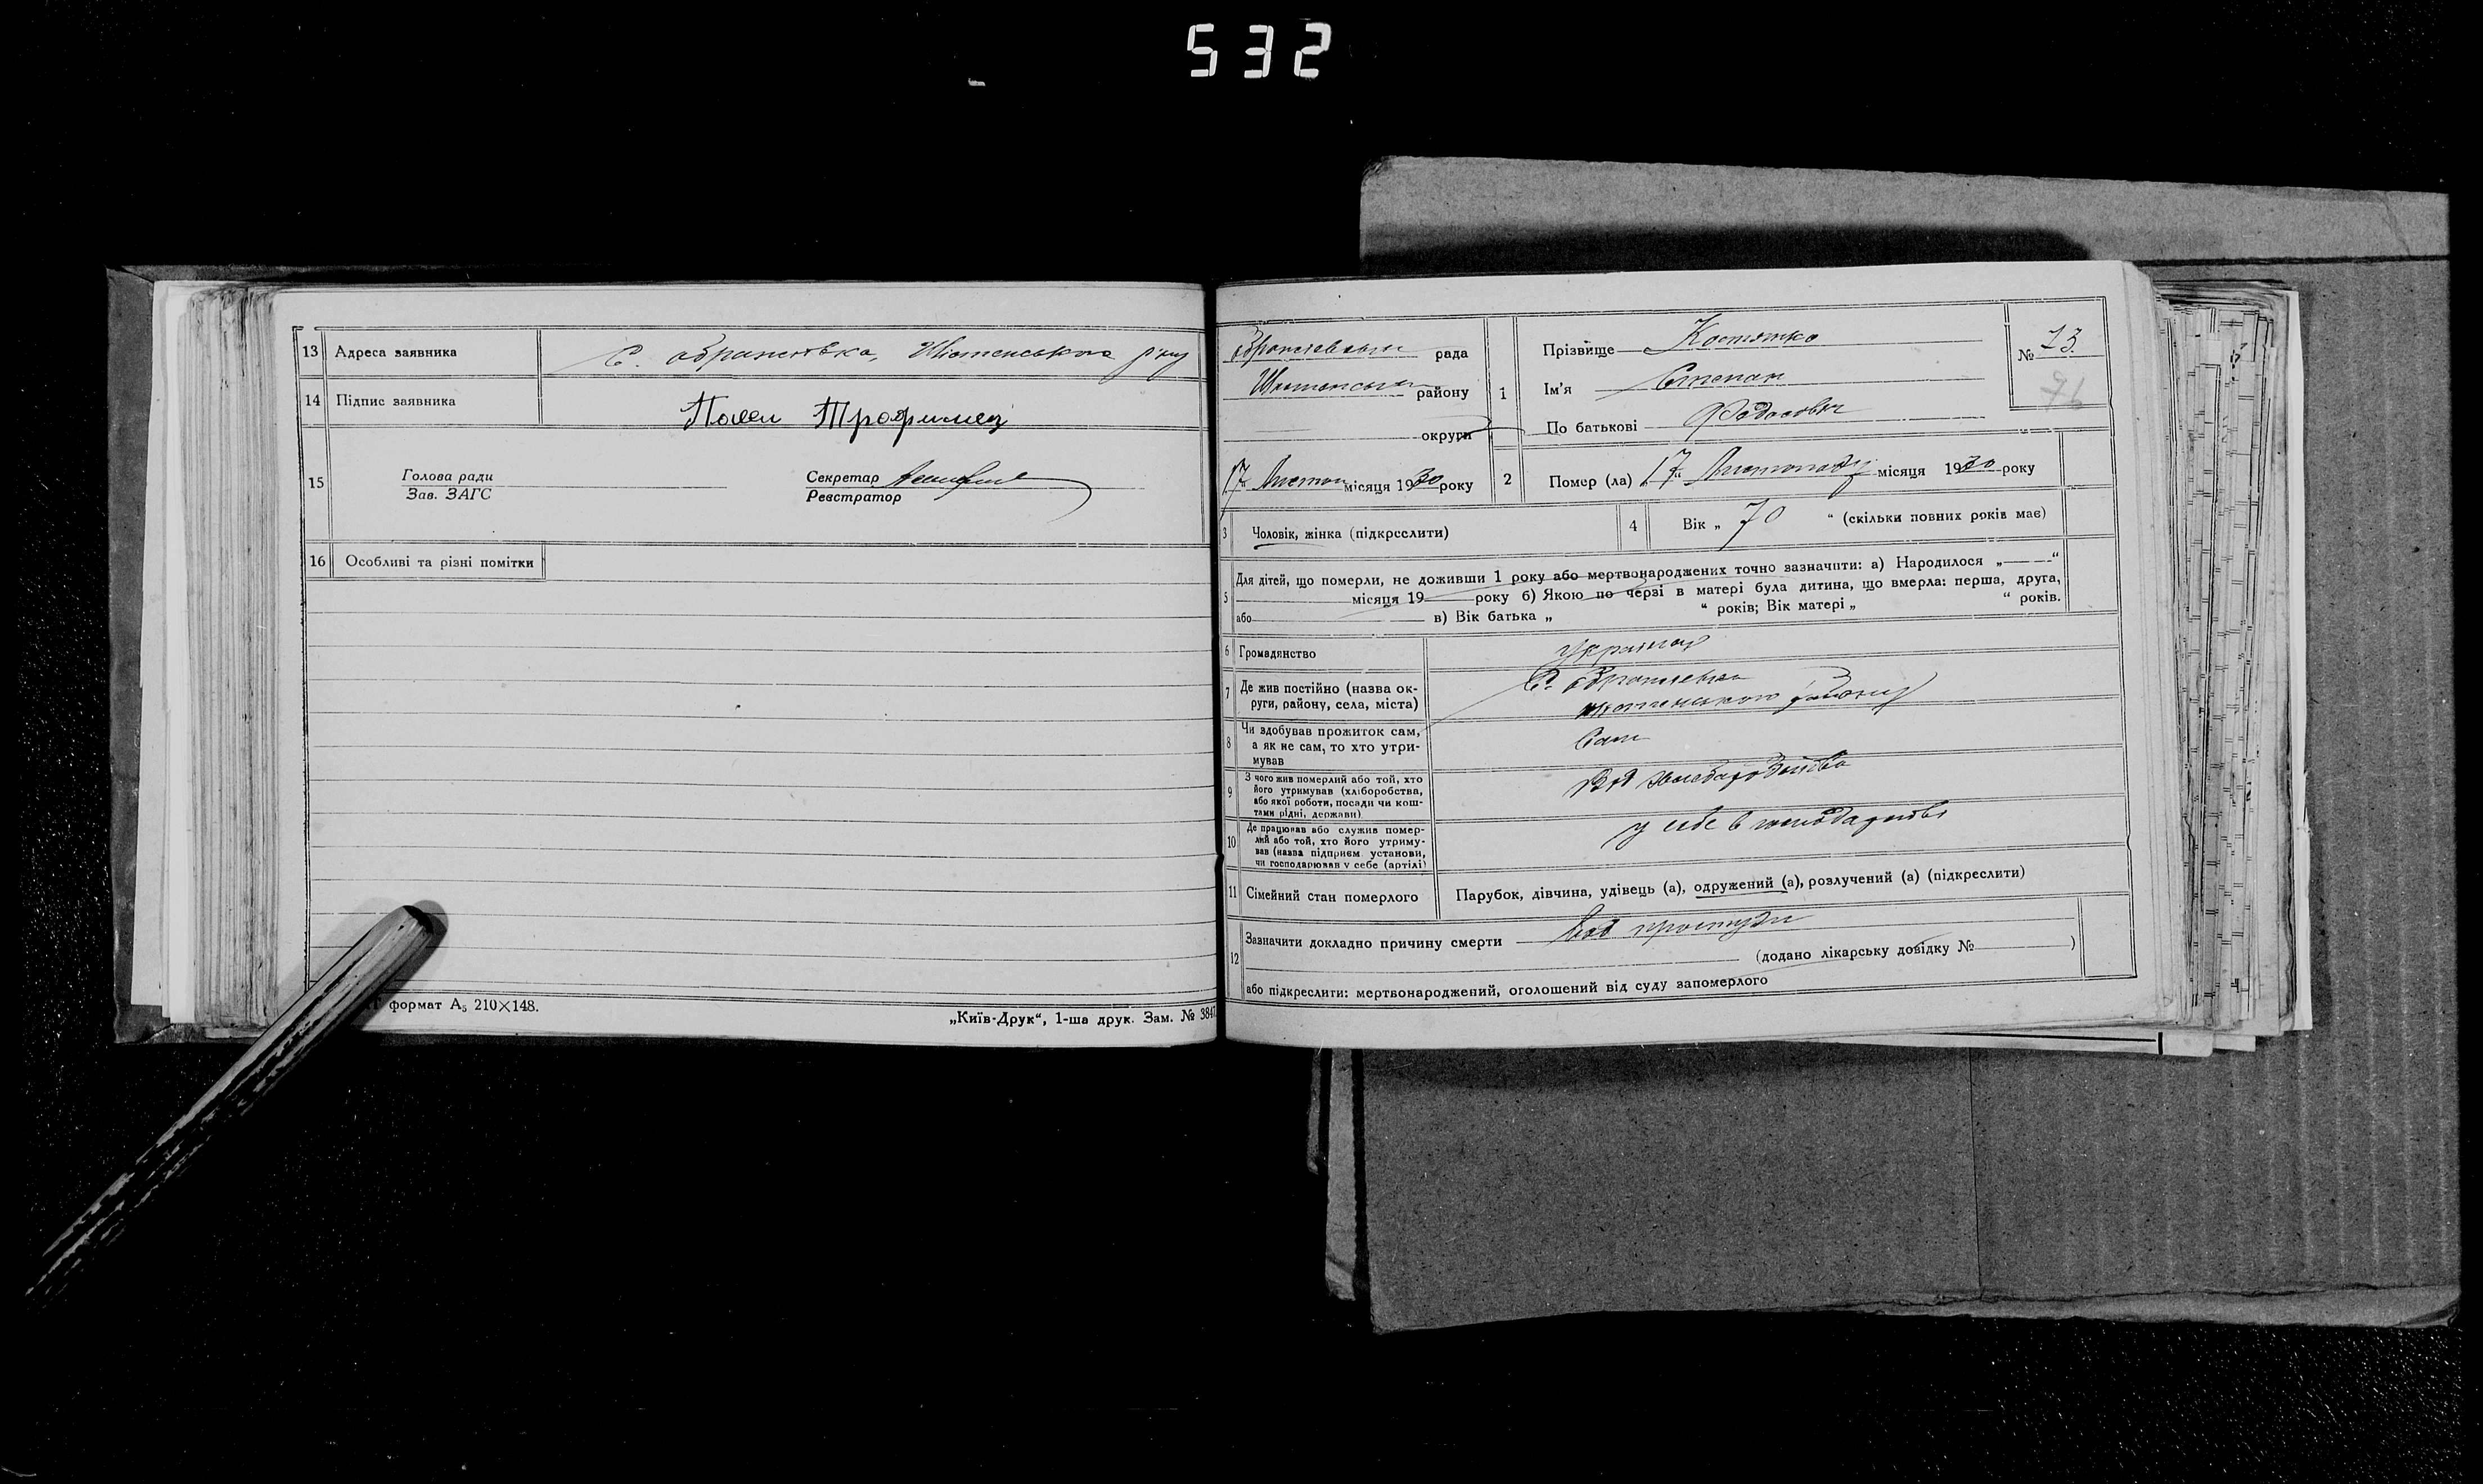 532
13 Адреса заявника С. Абрамовка, Шполянського р-ну
14 Підпис заявника Павел Трофимец
15 Голова ради
Зав. ЗАГС
Секретар
Реєстратор
16 Особливі та різні помітки
формат А₅ 210×148.
„Київ-Друк“, 1-ша друк. Зам. № 384
рада
району
округи
17 Листоп місяця 1930 року
1 Прізвище Костюшко
Ім'я Степан
По батькові Федосович
№ 23.
2 Помер (ла) „17“ Листопаду місяця 1930 року
3 Чоловік, жінка (підкреслити)
4 Вік „ 70 “ (скільки повних років має)
5 Для дітей, що померли, не доживши 1 року або мертвонароджених точно зазначити: а) Народилося „ “
місяця 19 року б) Якою по черзі в матері була дитина, що вмерла: перша, друга,
або в) Вік батька „ “ років; Вік матері „ “ років.
6 Громадянство Україна
7 Де жив постійно (назва ок-
руги, району, села, міста)
С.
району
8 Чи здобував прожиток сам,
а як не сам, то хто утри-
мував
Сам
9 З чого жив померлий або той, хто
його утримував (хліборобства,
або якої роботи, посади чи кош-
тами рідні, держави)
Від господарства
10 Де працював або служив помер-
лий або той, хто його утриму-
вав (назва підприєм установи,
чи господарював у себе (артілі)
у себе в господарстві
11 Сімейний стан померлого Парубок, дівчина, удівець (а), одружений (а), розлучений (а) (підкреслити)
12 Зазначити докладно причину смерти від простуди
(додано лікарську довідку № )
або підкреслити: мертвонароджений, оголошений від суду запомерлого